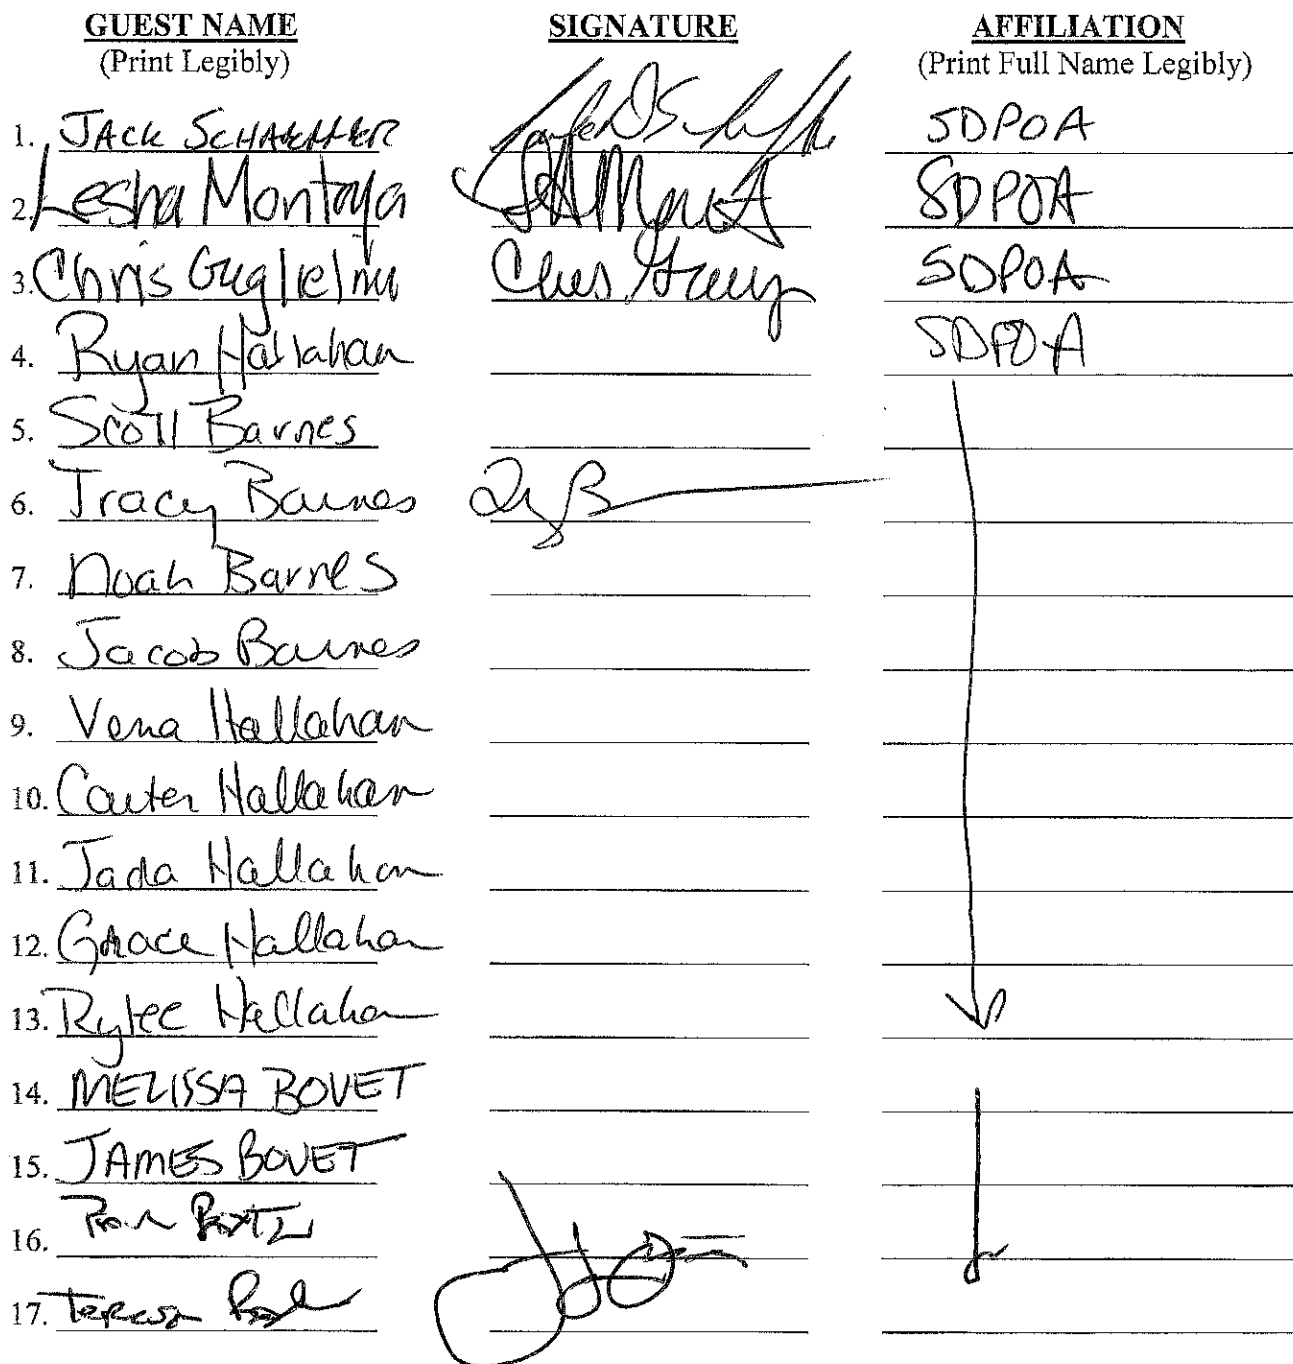 GUEST NAME SIGNATURE AFFILIATION
(Print Legibly) (Print Full Name Legibly)
1. JACK SCHAEFFER SDPOA
2. Lesha Montoya SDPOA
3. Chris Guglielmi SDPOA
4. Ryan Hallahan SDPOA
5. Scott Barnes
6. Tracy Barnes
7. Noah Barnes
8. Jacob Barnes
9. Vena Hallahan
10. Carter Hallahan
11. Jada Hallahan
12. Grace Hallahan
13. Rylee Hallahan
14. MELISSA BOVET
15. JAMES BOVET
16.
17. Teresa